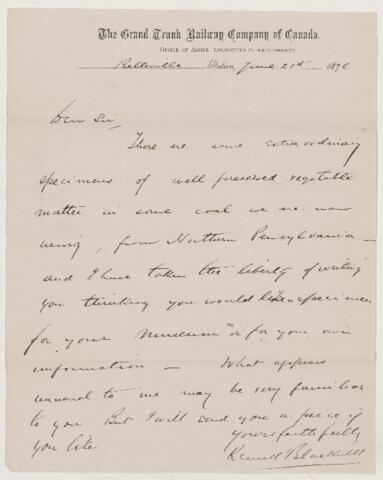 The Grand Trunk Railway Company of Canada.
Office of Assist. Locomotive Superintendent,
Belleville Station, June 21st 1876
Dear Sir,
There are some extraordinary
specimens of well preserved vegetable
matter in some coal we are now
using, from Northern Pensylvania —
and I have taken the liberty of writing
you thinking you would like a specimen
for your museum or for your own
information — What appears
unusual to me may be very familiar
to you But I will send you a peice if
you like
Yours faithfully
Kennet Blackwell